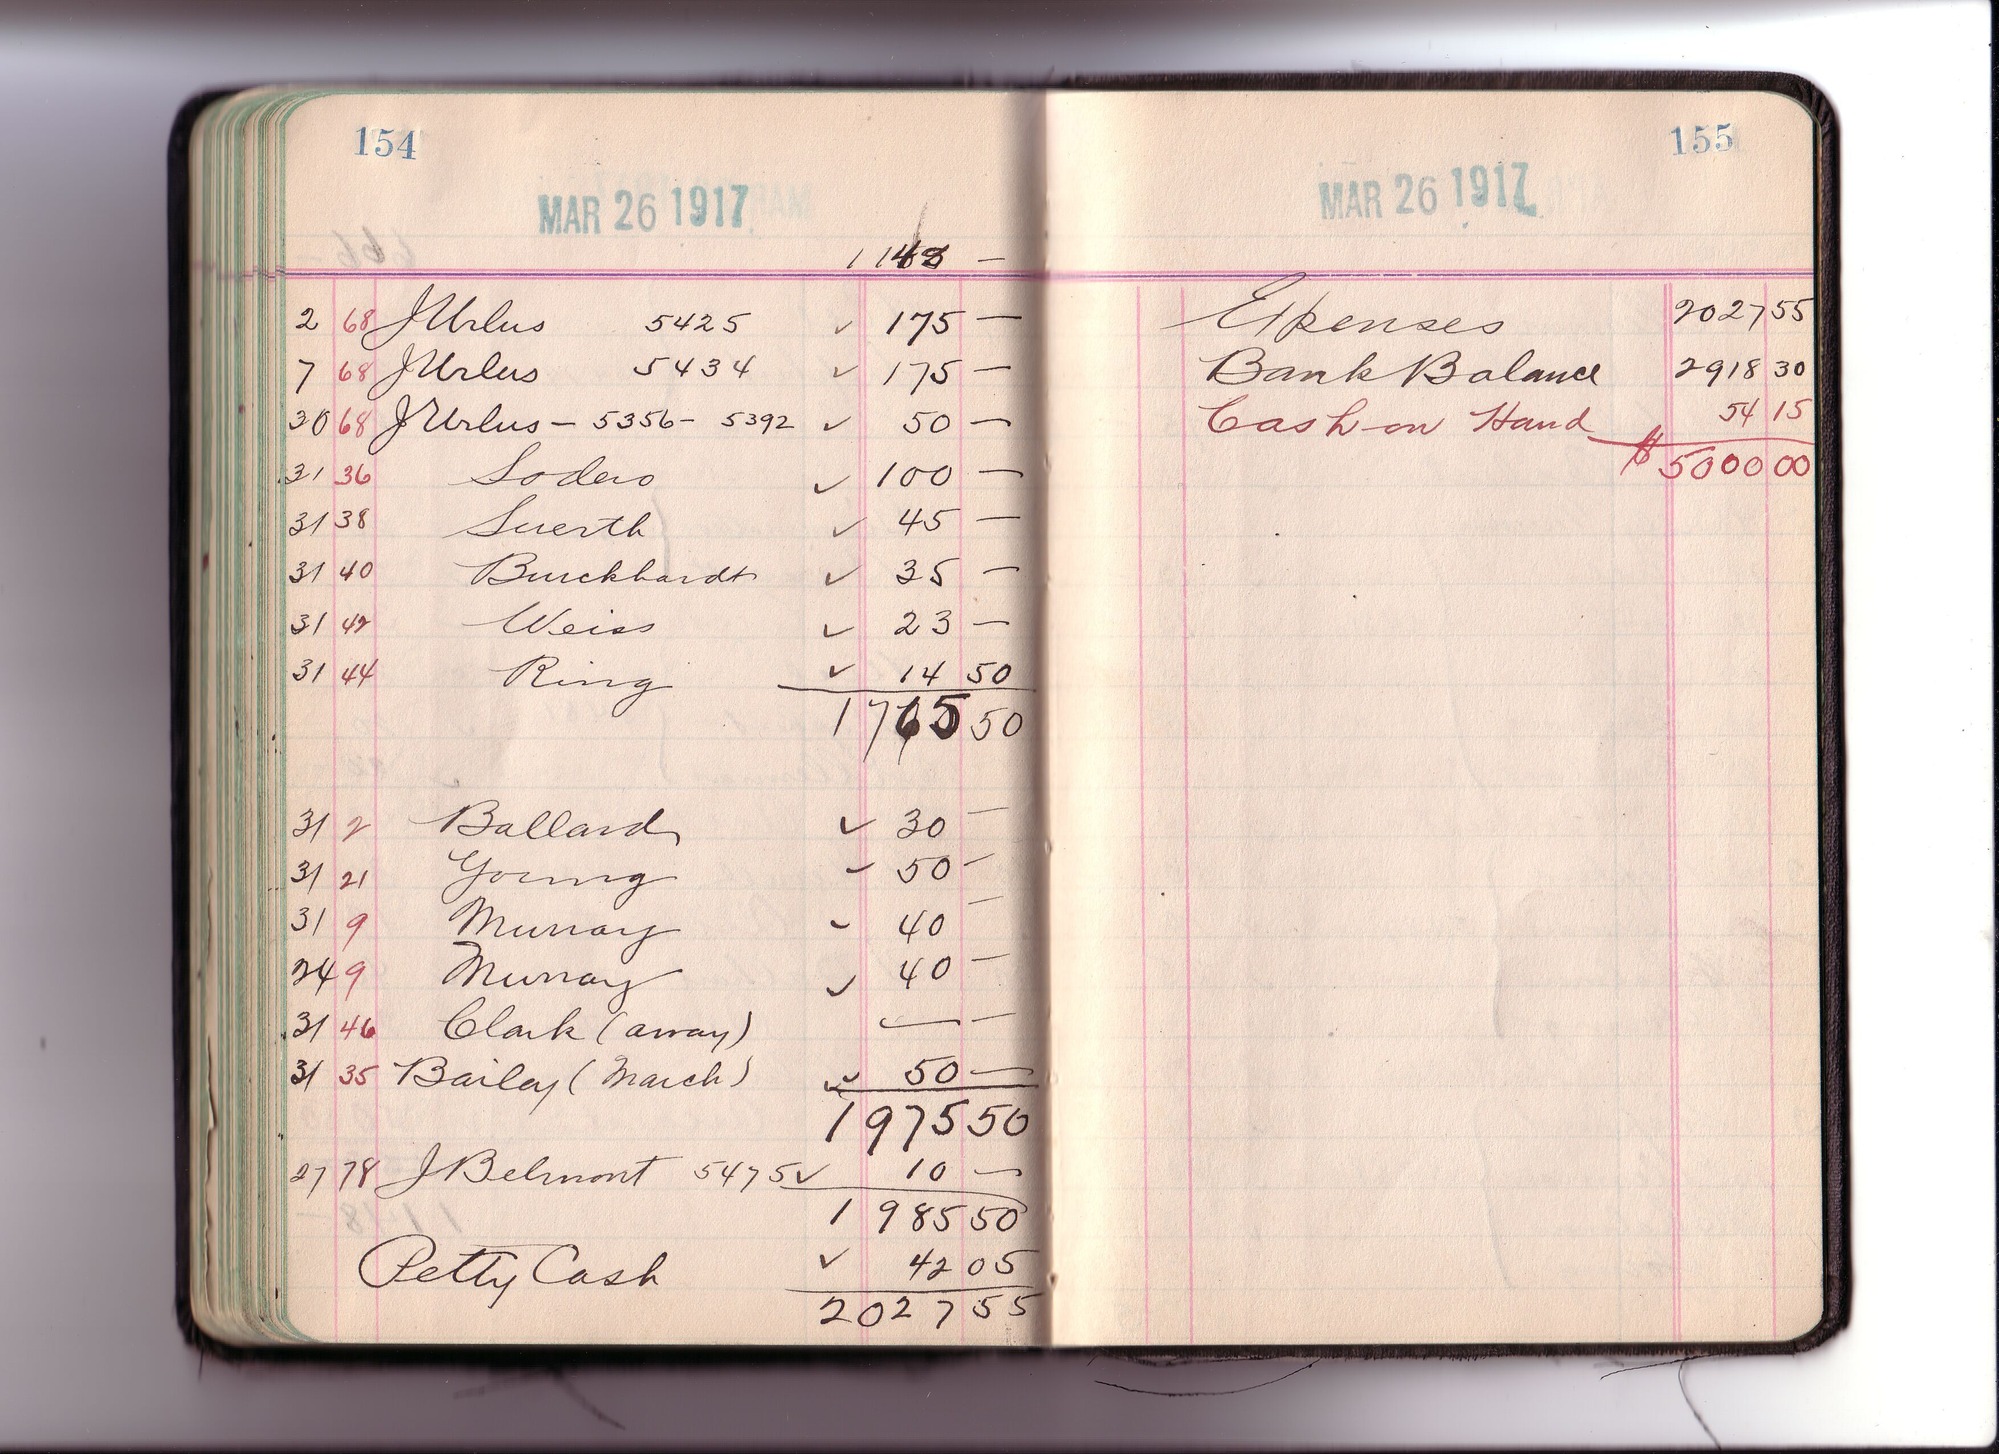 154
MAR 26 1917
1148 —
2 68 J Urlus 5425 ✓ 175 —
7 68 J Urlus 5434 ✓ 175 —
30 68 J Urlus — 5356 — 5392 ✓ 50 —
31 36 Soders ✓ 100 —
31 38 Suerth ✓ 45 —
31 40 Burckhardt ✓ 35 —
31 42 Weiss ✓ 23 —
31 44 Ring ✓ 14 50
1765 50
31 2 Ballard ✓ 30 —
31 21 Young ✓ 50 —
31 9 Murray ✓ 40 —
24 9 Murray ✓ 40 —
31 46 Clark (away) — —
31 35 Bailey (March) ✓ 50 —
1975 50
27 78 J Belmont 5475 ✓ 10 —
1985 50
Petty Cash ✓ 42 05
2027 55
155
MAR 26 1917
Expenses 2027 55
Bank Balance 2918 30
Cash on Hand 54 15
$ 5000 00